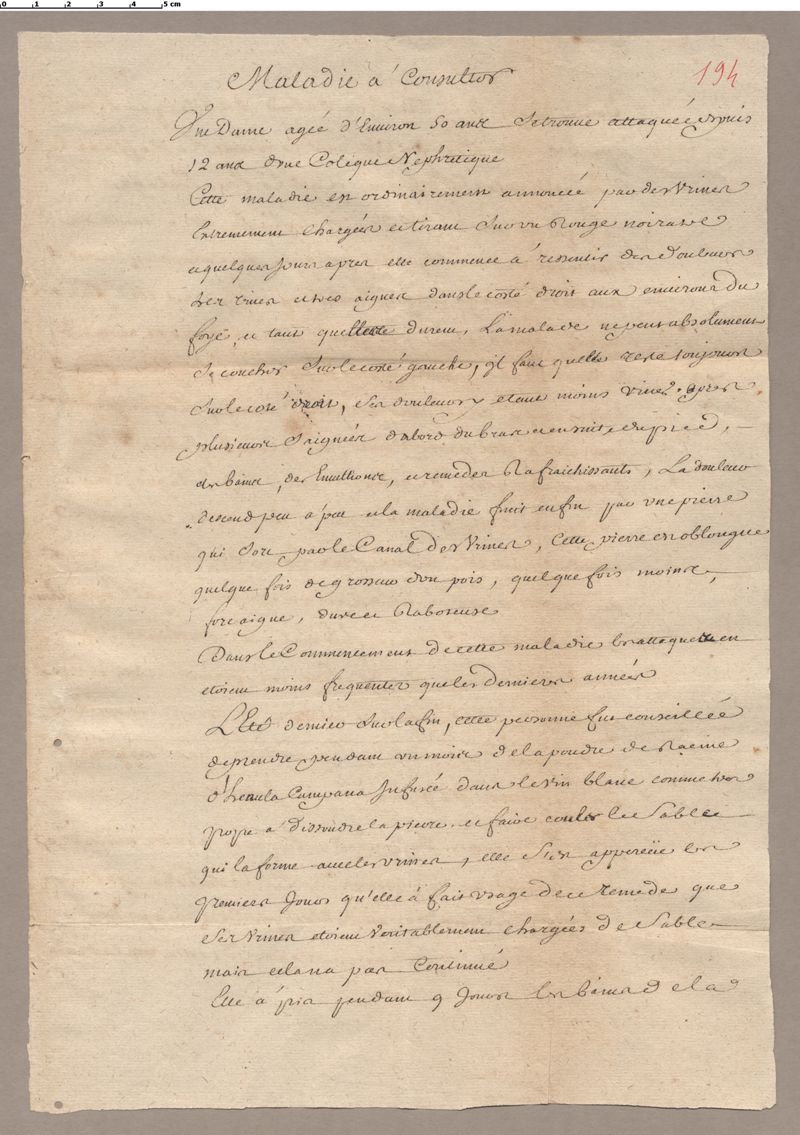 0 1 2 3 4 5 cm
194
Maladie à Consulter
Une Dame ageé d'Environ 50 ans Se trouve attaqueé depuis
12 ans d'une Colique Nephretique
Cette maladie est ordinairement annonceé par des Urines
Extremement Chargées et tirant Sur un Rouge noiratre
et quelques Jours apres elle commence à ressentir des douleurs
tres vives et tres aigues dans le costé droit aux environs du
foye, et tant quelles durent, La malade ne peut absolument
Se coucher Sur le costé gauche, il faut quelle reste toujours
Sur le costé droit, Ses douleurs y etant moins vives. apres
plusieurs Saignées d'abord du bras et ensuite du pied,
des bains, des Emultions, et remedes Rafraichissants, La douleur
descend peu à peu et la maladie finit enfin par une pierre
qui Sort par le Canal des Urines, Cette pierre est oblongue
quelque fois de grosseur d'un pois, quelque fois moins,
fort aigue, dure et Raboteuse
Dans le Commencement de cette maladie les attaques en
etoient moins frequentes que les dernieres années
L'Eté dernier Sur la fin, cette personne fut conseillée
de prendre pendant un mois de la poudre de Racine
d'Enula Campana Infusée dans le vin blanc comme tres
propre à dissoudre la pierre et faire couler le Sable
qui la forme avec les urines, elle S'est apperçüe les
premiers Jours qu'elle à fait usage de ce remede que
Ses Urines etoient veritablement chargées de Sable
mais cela n'a pas Continué
Elle à pris pendant 9 Jours les bains de la